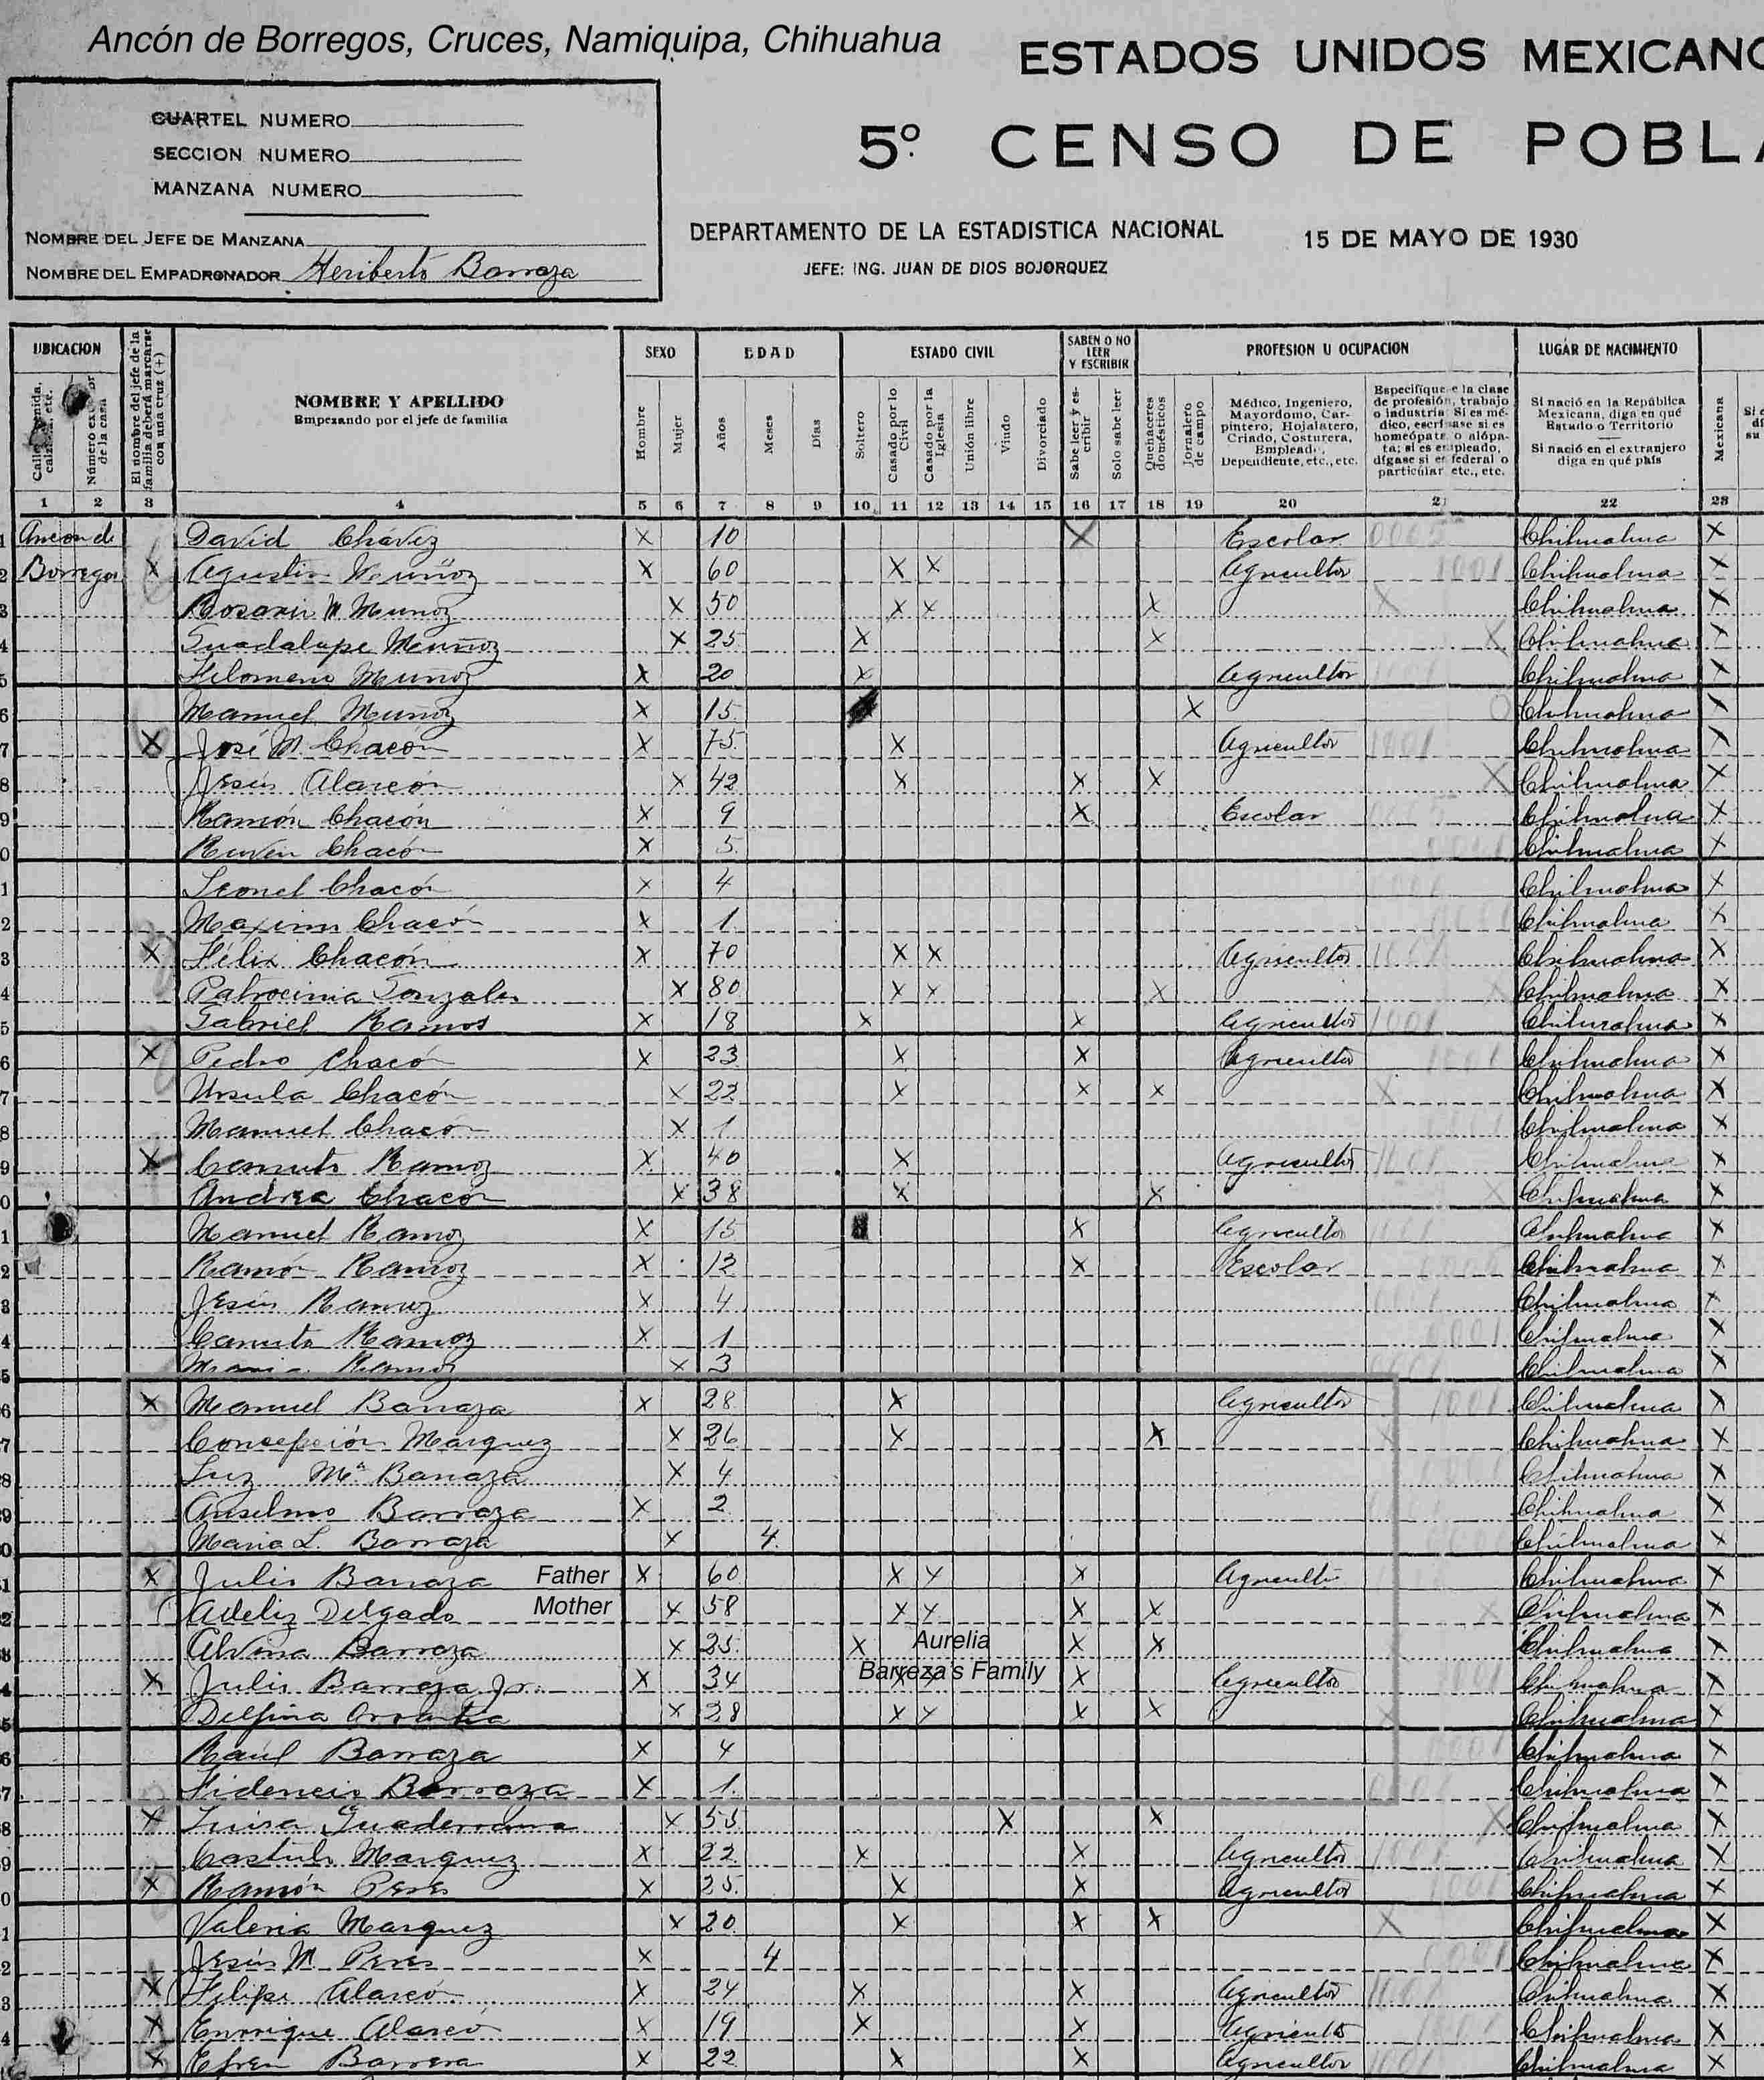 Ancón de Borregos, Cruces, Namiquipa, Chihuahua
ESTADOS UNIDOS MEXICANO
CUARTEL NUMERO
SECCION NUMERO
MANZANA NUMERO
5º CENSO DE POBLA
NOMBRE DEL JEFE DE MANZANA
NOMBRE DEL EMPADRONADOR Heriberto Barraza
DEPARTAMENTO DE LA ESTADISTICA NACIONAL
15 DE MAYO DE 1930
JEFE: ING. JUAN DE DIOS BOJORQUEZ
UBICACION
El nombre del jefe de la familia deberá marcarse con una cruz (+)
NOMBRE Y APELLIDO
Empezando por el jefe de familia
SEXO
EDAD
ESTADO CIVIL
SABEN O NO LEER Y ESCRIBIR
PROFESION U OCUPACION
LUGAR DE NACIMIENTO
Número de la casa
Hombre Mujer Años Meses Días Soltero Casado por lo Civil Casado por la Iglesia Unión libre Viudo Divorciado Sabe leer y escribir Solo sabe leer Quehaceres domésticos Jornalero de campo
Médico, Ingeniero, Mayordomo, Carpintero, Hojalatero, Criado, Costurera, Empleado, Dependiente, etc., etc.
Especifíquese la clase de profesión, trabajo o industria. Si es médico, escríbase si es homeópata o alópata; si es empleado, dígase si es federal o particular etc., etc.
Si nació en la República Mexicana, diga en qué Estado o Territorio
Si nació en el extranjero diga en qué país
Mexicana
1 2 3 4 5 6 7 8 9 10 11 12 13 14 15 16 17 18 19 20 21 22 23
Ancon de David Chávez X 10 X Escolar Chihuahua X
Borregos X Agustin Muñoz X 60 X X Agricultor 1001 Chihuahua X
M Muñoz X 50 X X X Chihuahua X
Guadalupe Muñoz X 25 X X Chihuahua X
Filomeno Muñoz X 20 X Agricultor Chihuahua X
Manuel Muñoz X 15 X Chihuahua X
X José M. Chacón X 75 X Agricultor 1001 Chihuahua X
Jesús Alarcón X 42 X X X Chihuahua X
Ramón Chacón X 9 X Escolar Chihuahua X
Ruven Chacón X 5 Chihuahua X
Leonel Chacón X 4 Chihuahua X
Chacón X 1 Chihuahua X
X Félix Chacón X 70 X X Agricultor Chihuahua X
Patrocinia Gonzales X 80 X X X Chihuahua X
Gabriel Ramos X 18 X X Agricultor 1001 Chihuahua X
X Pedro Chacón X 23 X X Agricultor Chihuahua X
Ursula Chacón X 22 X X X Chihuahua X
Manuel Chacon X 1 Chihuahua X
X Canuto Ramoz X 40 X Agricultor Chihuahua X
Andrea Chacon X 38 X X Chihuahua X
Manuel Ramoz X 15 X Agricultor Chihuahua X
Ramón Ramoz X 12 X Escolar Chihuahua X
Jesús Ramoz X 4 Chihuahua X
Canuto Ramoz X 1 Chihuahua X
Maria Ramoz X 3 Chihuahua X
X Manuel Barraza X 28 X Agricultor 1001 Chihuahua X
Concepción Marquez X 26 X X Chihuahua X
Luz Ma. Barraza X 4 Chihuahua X
Anselmo Barraza X 2 Chihuahua X
Maria L. Barraza X 4 Chihuahua X
X Julio Barraza Father X 60 X X X Agricultor Chihuahua X
Delgado Mother X 58 X X X X Chihuahua X
Barraza X 25 X Aurelia X X Chihuahua X
X Julio Barraza Jr. X 34 Barreza's Family X Agricultor Chihuahua X
Delfina X 28 X X X X Chihuahua X
Raúl Barraza X 4 Chihuahua X
Fidencio Barraza X 1 Chihuahua X
X Luisa X 55 X X Chihuahua X
Castulo Marquez X 22 X X Agricultor Chihuahua X
X Ramón Peres X 25 X X Agricultor Chihuahua X
Valeria Marquez X 20 X X X Chihuahua X
Jesús M Peres X 4 Chihuahua X
X Felipe Alarcó X 24 X X Agricultor Chihuahua X
X Enrrique Alarcó X 19 X X Agricultor Chihuahua X
X Efren Barrera X 22 X X Agricultor 1001 Chihuahua X